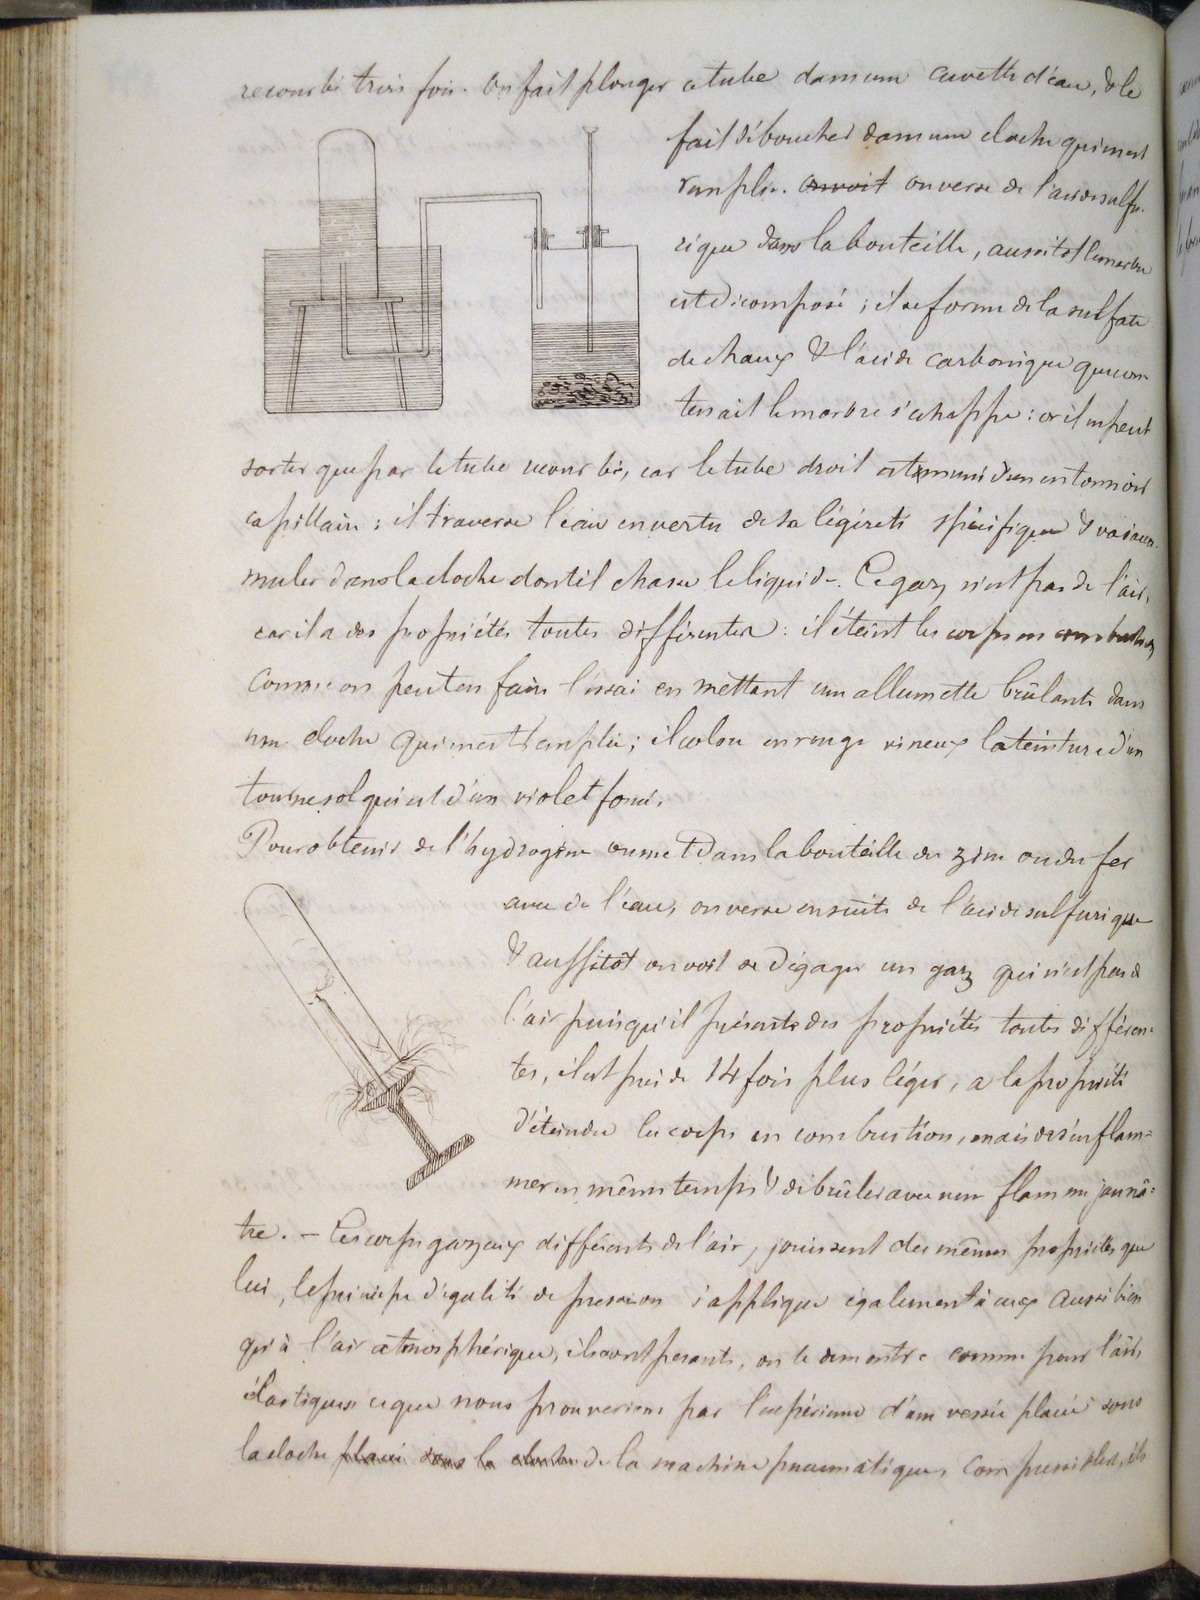 recourbé trois fois. On fait plonger ce tube dans une cuvette d'eau, & le
fait déboucher dans une cloche qui en est
remplie. on voit on verse de l'acide sulfu-
rique dans la bouteille, aussitôt le marbre
est décomposé ; il se forme de la sulfate
de chaux & l'acide carbonique que con
tenait le marbre s'échappe : or il ne peut
sortir que par le tube recourbé, car le tube droit est muni d'un entonnoir
capillaire ; il traverse l'eau en vertu de sa légéreté spécifique & va s'accu-
muler dans la cloche dont il chasse le liquide. Ce gaz n'est pas de l'air,
car il a des propriétés toutes différentes : il éteint les corps en combustion
comme on peut en faire l'essai en mettant une allumette brûlante dans
une cloche qui en est remplie ; il colore en rouge vineux la teinture d'un
tournesol qui est d'un violet foncé.
Pour obtenir de l'hydrogène on met dans la bouteille du zinc ou du fer
avec de l'eau, on verse ensuite de l'acide sulfurique
& aussitôt on voit se dégager un gaz qui n'est pas de
l'air puisqu'il présente des propriétés toutes différen-
tes, il est près de 14 fois plus léger, a la propriété
d'éteindre les corps en combustion, mais de s'enflam=
mer en même temps & de brûler avec une flamme jaunâ=
tre. – Ces corps gazeux différents de l'air, jouissent des mêmes propriétés que
lui, le principe d'égalité de pression s'applique également à eux aussi bien
qu'à l'air atmosphérique, ils sont pesants, on le démontre comme pour l'air,
élastiques ce que nous prouverions par l'expérience d'une vessie placée sous
la cloche placée sous la cloche de la machine pneumatique, compressibles, ils